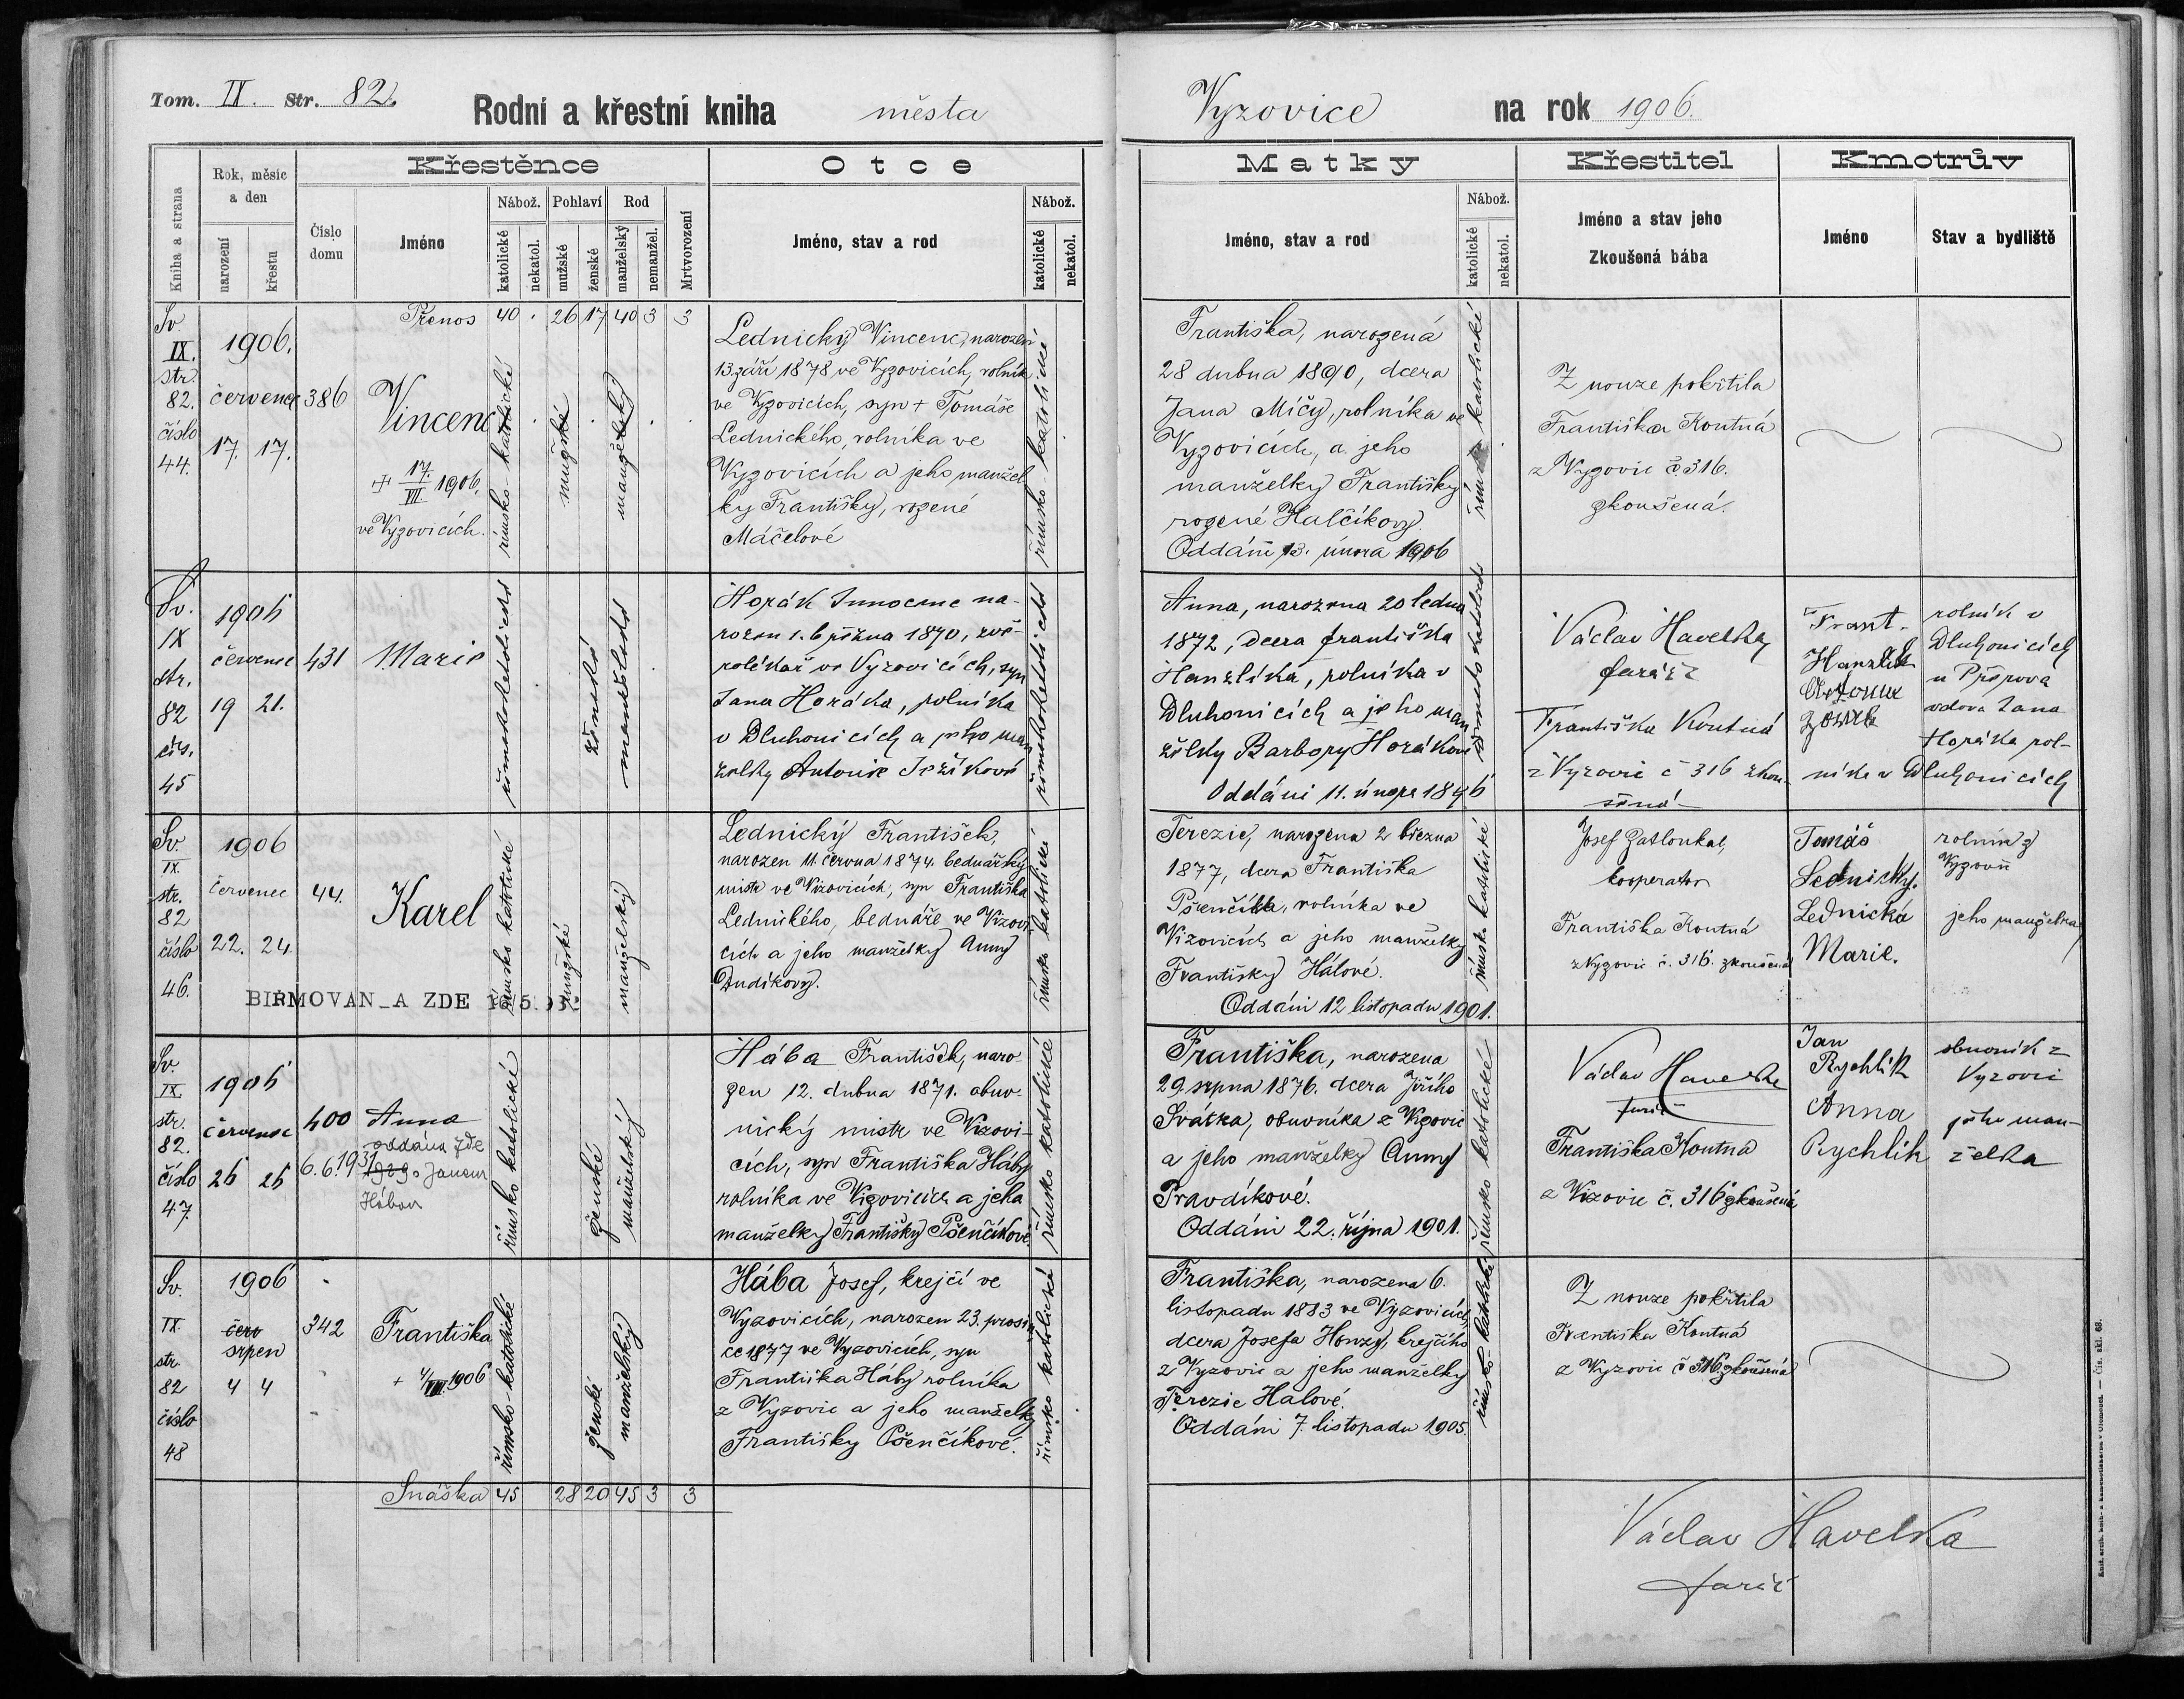 Tom. IX. Str. 82.
Rodní a křestní kniha města
Vyzovice na rok 1906.
Kniha a strana
Rok, měsíc a den
narození
křestu
Křestěnce
Číslo domu
Jméno
Nábož.
katolické
nekatol.
Pohlaví
mužské
ženské
Rod
manželský
nemanžel.
Mrtvorození
Otce
Jméno, stav a rod
Nábož.
katolické
nekatol.
Matky
Jméno, stav a rod
Nábož.
katolické
nekatol.
Křestitel
Jméno a stav jeho
Zkoušená bába
Kmotrův
Jméno
Stav a bydliště
Přenos 40 . 26 17 40 3 3
Sv.
IX.
str.
82.
číslo
44.
1906.
červenec
17. 17.
386
Vincenc
+ 17./VII. 1906.
ve Vyzovicích.
římsko-katolické
mužské
manželský
Lednický Vincenc, narozen
13. září 1878 ve Vyzovicích, rolník
ve Vyzovicích, syn + Tomáše
Lednického, rolníka ve
Vyzovicích a jeho manžel
ky Františky, rozené
Máčelové
římsko-katolické
Františka, narozená
28 dubna 1890, dcera
Jana Míčy, rolníka ve
Vyzovicích, a jeho
manželky Františky
rozené Halčíkovy.
Oddáni 13. února 1906
římsko katolické
Z nouze pokřtila
Františka Koutná
z Vyzovic č. 316.
zkoušená.
Sv.
IX
str.
82
čís.
45
1906
červenec
19 21.
431
Marie
římskokatolické
ženské
manželské
Horák Innocenc na-
rozen 1. března 1870, zvě-
rolékař ve Vyzovicích, syn
Jana Horáka, rolníka
v Dluhonicích a jeho man
želky Antonie Ježíkové
římskokatolické
Anna, narozena 20 ledna
1872, dcera Františka
Hanzlíka, rolníka v
Dluhonicích a jeho man
želky Barbory Horákové
Oddáni 11. února 1896
Václav Havelka
farář
Františka Koutná
z Vyzovic č 316 zkou-
šená
Frant.
Hanzlík
rolník v
Dluhonicích
u Přerova
vdova Jana
Horáka rol-
níka v Dluhonicích
Sv.
IX.
str.
82
číslo
46.
1906
červenec
22. 24.
44.
Karel
BIŘMOVAN_A ZDE
římsko katolické
mužské
manželský
Lednický František,
narozen 11. června 1874. bednářský
mistr ve Vizovicích, syn Františka
Lednického, bednáře ve Vizovi-
cích a jeho manželky Anny
Dudíkovy.
římsko katolické
Terezie, narozena 2 března
1877, dcera Františka
Pšenčíka, rolníka ve
Vizovicích a jeho manželky
Františky Hálové.
Oddáni 12 listopadu 1901.
římsko katolické
Josef Zatloukal,
kooperator
Františka Koutná
z Vyzovic č. 316. zkoušená
Tomáš
Lednický.
Lednická
Marie.
rolník z
Vyzovic
jeho manželka
Sv.
IX.
str.
82.
číslo
47.
1906
červenec
26 26
400
Anna
oddána zde
6.6.1931 s Janem
Hábou
římsko katolické
ženské
manželský
Hába František, naro
zen 12. dubna 1871. obuv-
nický mistr ve Vizovi-
cích, syn Františka Háby
rolníka ve Vizovicích a jeho
manželky Františky Pšenčíkové.
římsko katolické
Františka, narozena
29. srpna 1876. dcera Jiřího
Svátka, obuvníka z Vizovic
a jeho manželky Anny
Pravdíkové.
Oddáni 22. října 1901.
římsko katolické
Václav Havelka
farář
Františka Koutná
z Vizovic č. 316 zkoušená
Jan
Rychlík
Anna
Rychlík
obuvník z
Vyzovic
jeho man-
želka
Sv.
IX.
str.
82
číslo
48
1906
červ
srpen
4 4
342
Františka
+ 4/VIII. 1906
římsko-katolické
ženské
manželský
Hába Josef, krejčí ve
Vyzovicích, narozen 23. prosin
ce 1877 ve Vyzovicích, syn
Františka Háby rolníka
z Vyzovic a jeho manželky
Františky Pšenčíkové.
římsko katolické
Františka, narozena 6.
listopadu 1883 ve Vyzovicích,
dcera Josefa Honzy, krejčího
z Vyzovic a jeho manželky
Terezie Halové.
Oddáni 7. listopadu 1905.
římsko-katolické
Z nouze pokřtila
Františka Koutná
z Vyzovic č 316 zkoušená
Snáška 45 28 20 45 3 3
Václav Havelka
farář